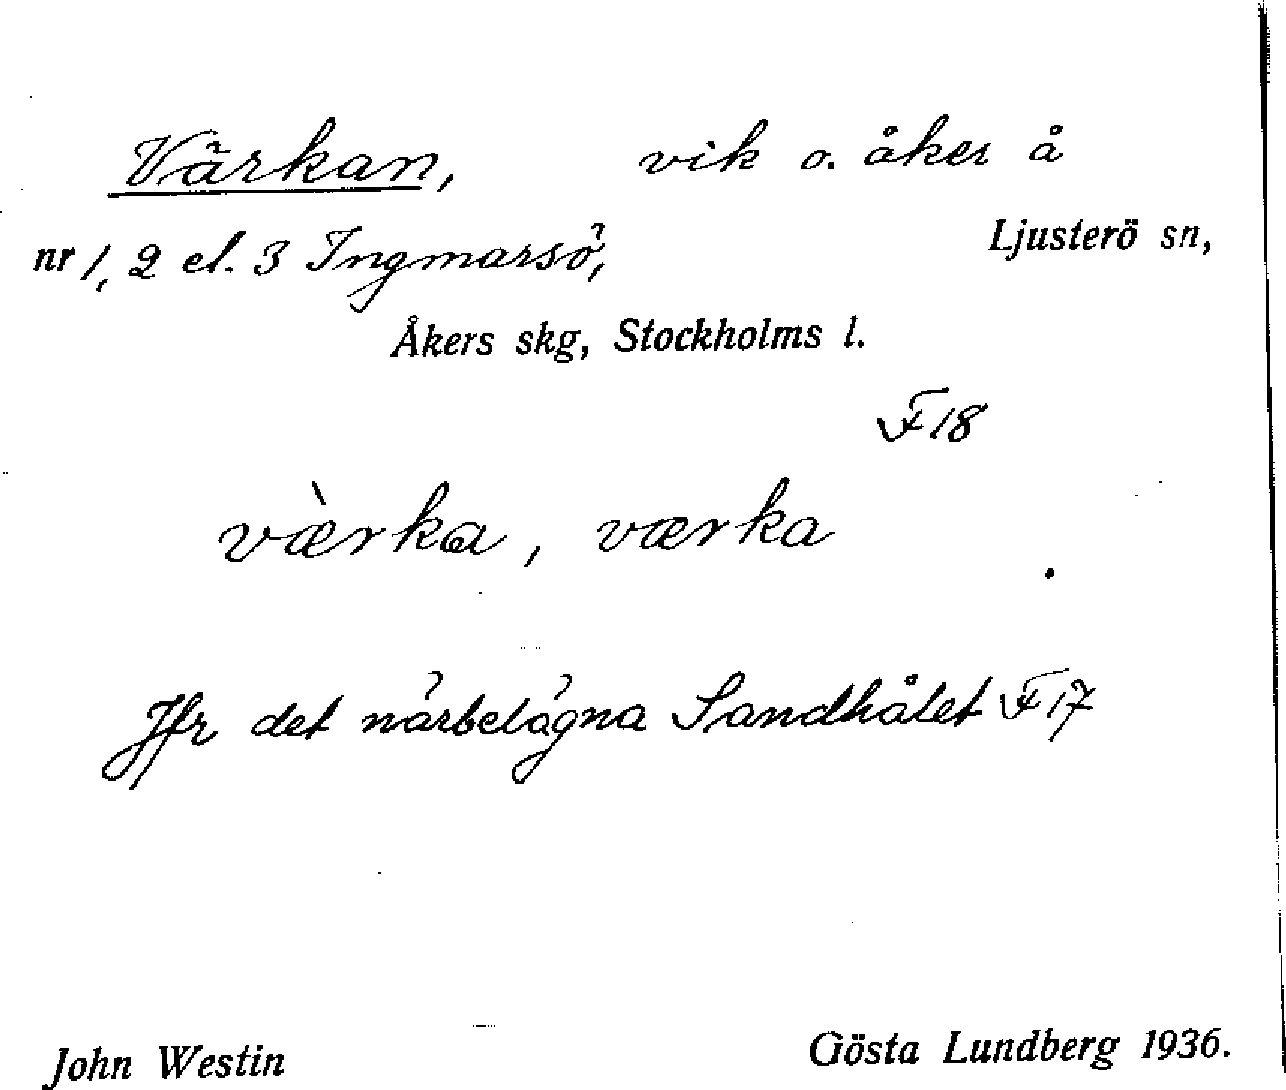 Värkan, vik o. åker å
nr 1, 2 el. 3 Ingmarsö, Ljusterö sn,
Åkers skg, Stockholms l.
F 18
væ̀rka, værka
Jfr det närbelägna Sandhålet F 17
John Westin Gösta Lundberg 1936.